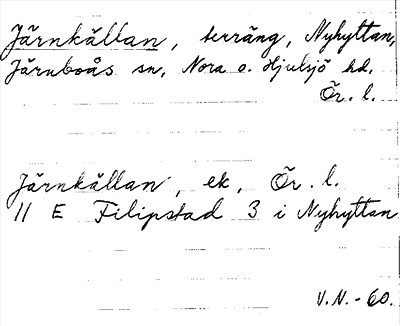 Järnkällan, terräng, Nyhyttan,
Järnboås sn, Nora o. Hjulsjö hd.
Ör. l.
Järnkällan, ek, Ör. l.
11 E Filipstad 3 i Nyhyttan
V.N.-60.